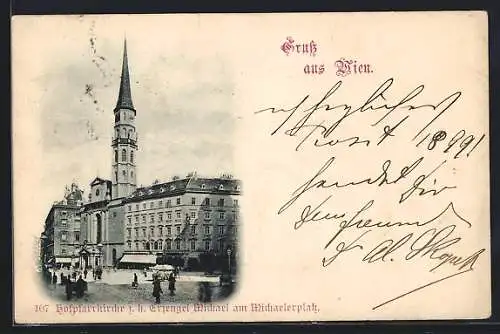 Gruß
aus Wien.
herzlichen
Prosit 1899!
sendet Dir
Dein Freund
Dr Al.
167 Hofpfarrkirche z. h. Erzengel Michael am Michaelerplatz.